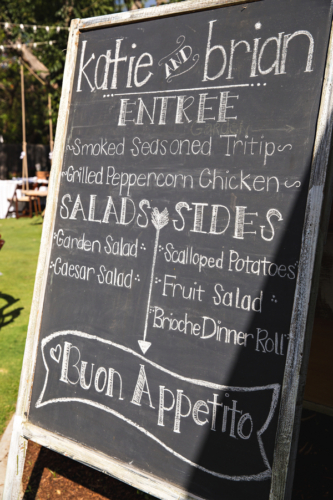 katie AND brian
ENTREE
~Smoked Seasoned Tritip~
~Grilled Peppercorn Chicken~
SALADS SIDES
Garden Salad
Scalloped Potatoes
Caesar Salad
Fruit Salad
Brioche Dinner Roll
Buon Appetito